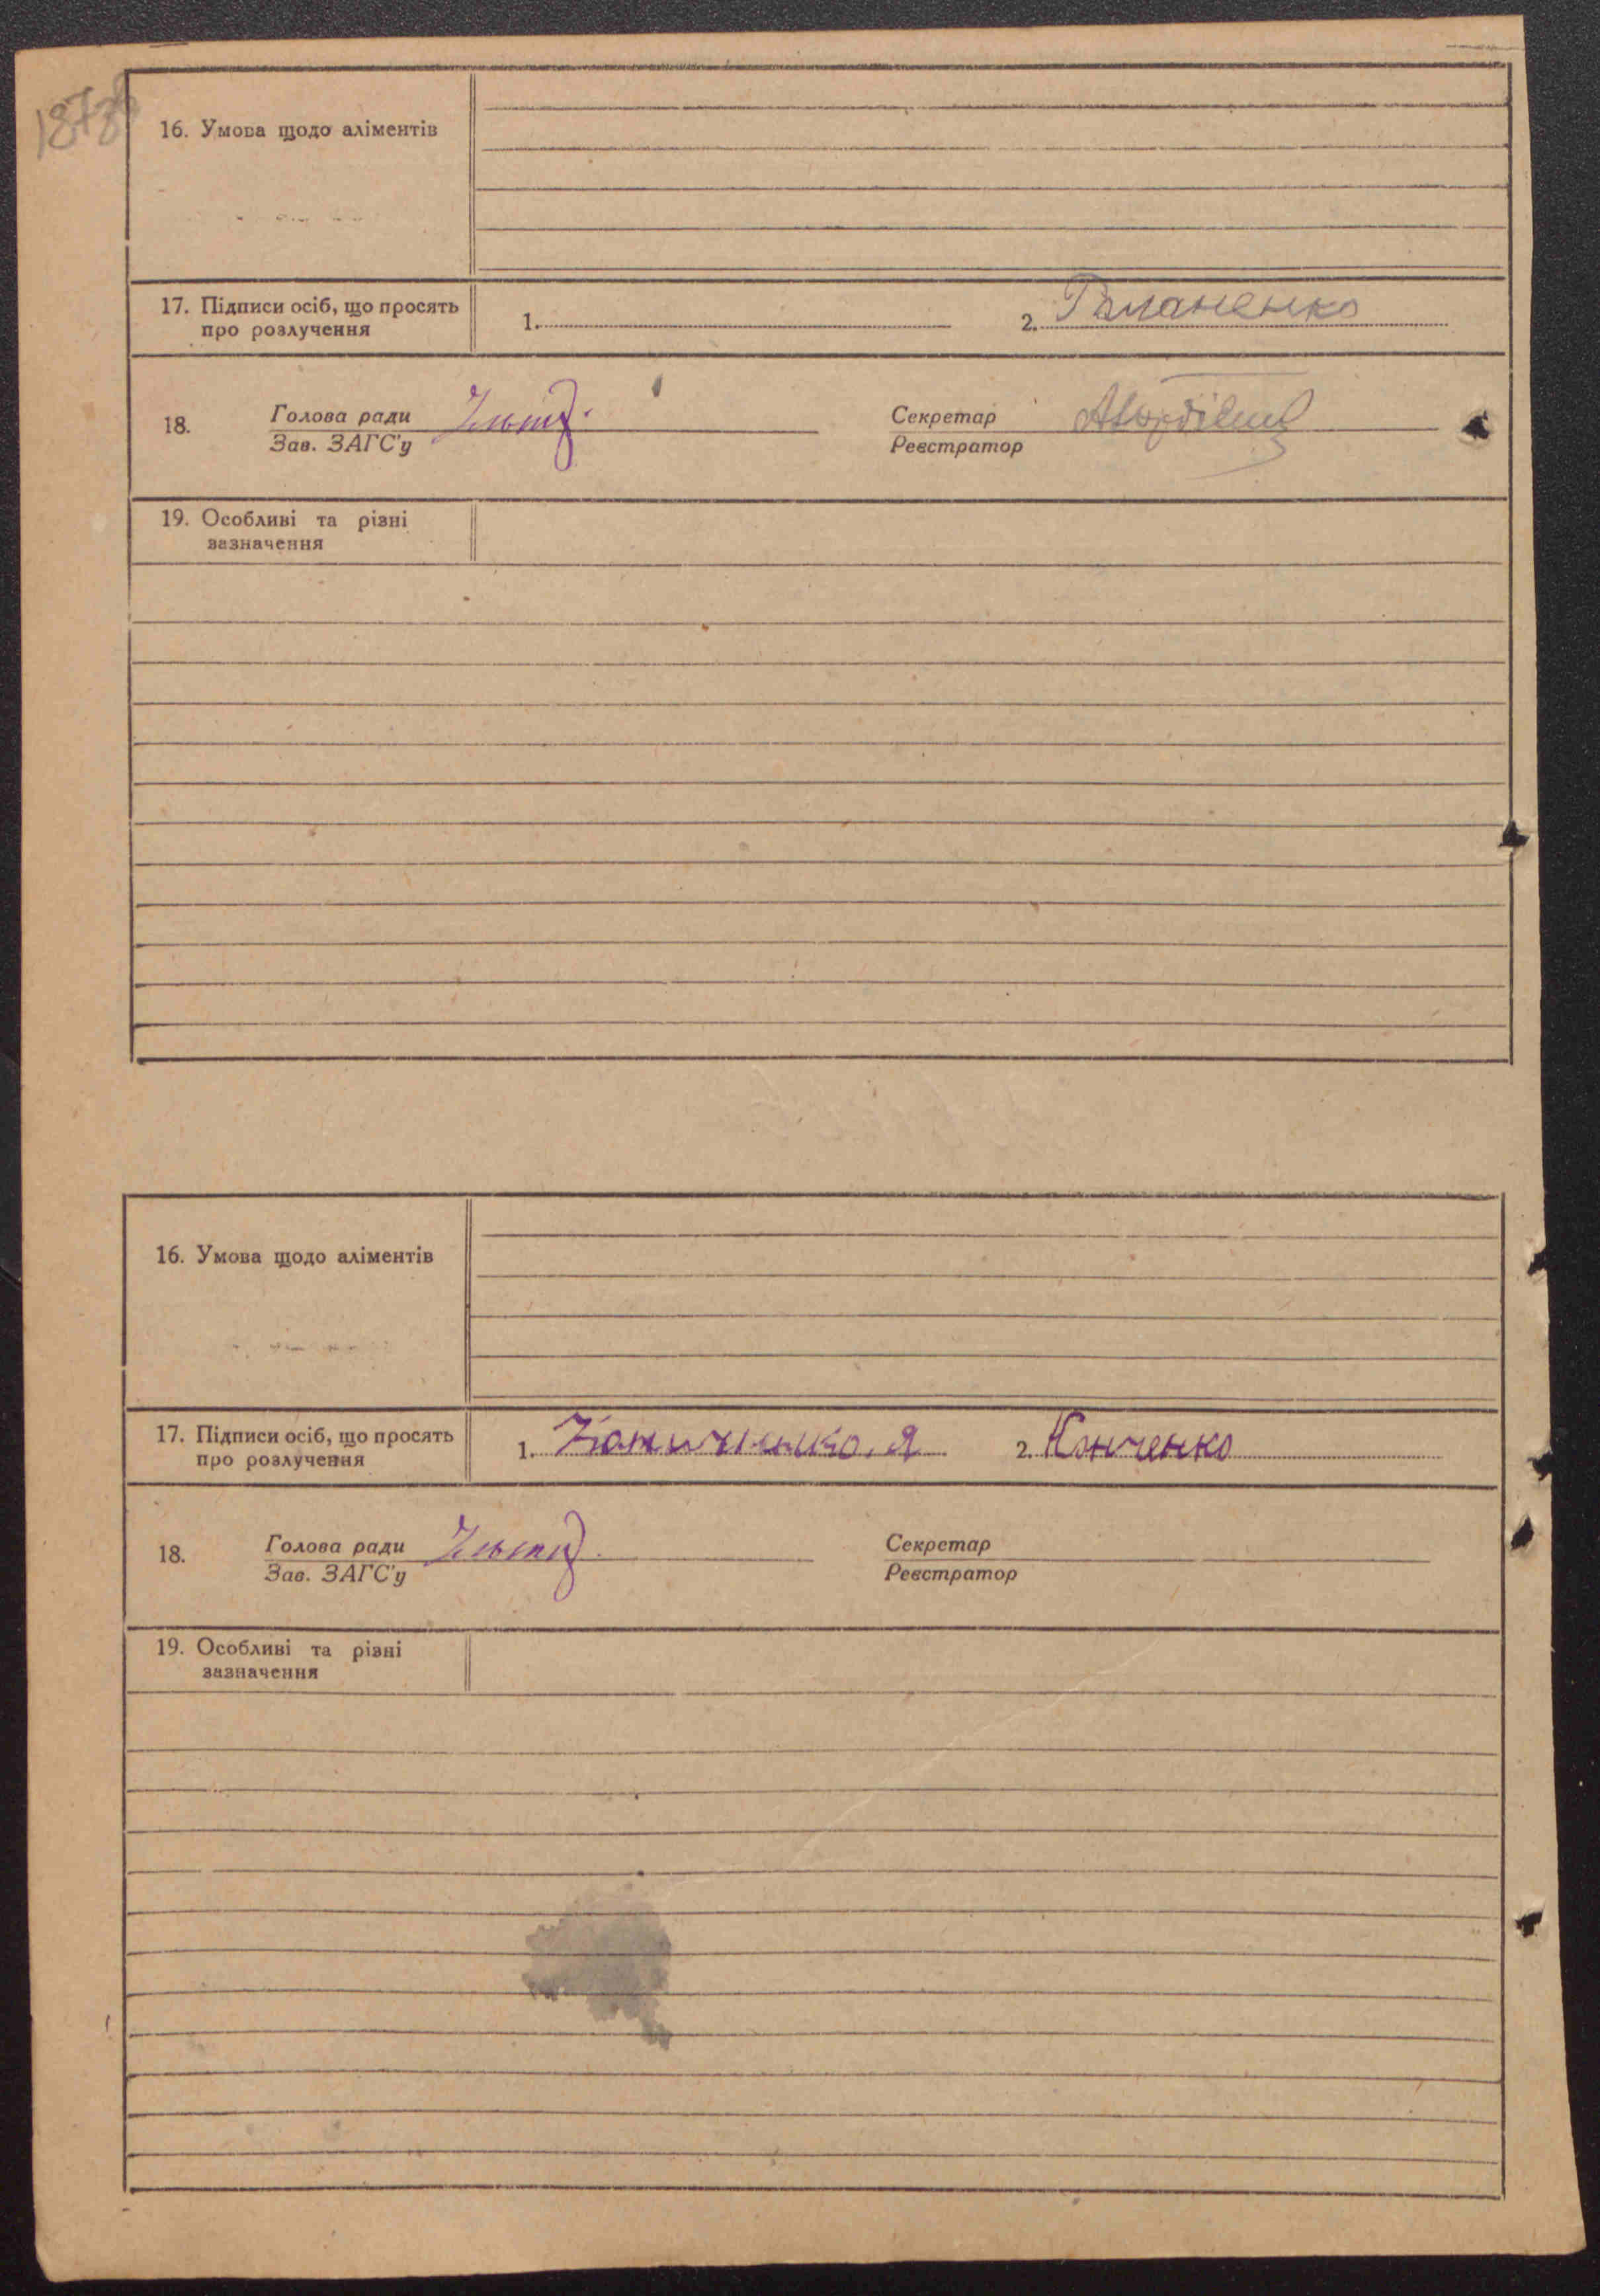 16. Умова щодо аліментів
17. Підписи осіб, що просять
про розлучення
1.
2. Романенко
18.
Голова ради
Зав. ЗАГС'у
Секретар
Реєстратор
19. Особливі та різні
зазначення
16. Умова щодо аліментів
17. Підписи осіб, що просять
про розлучення
1.
2. Конченко
18.
Голова ради
Зав. ЗАГС'у
Секретар
Реєстратор
19. Особливі та різні
зазначення